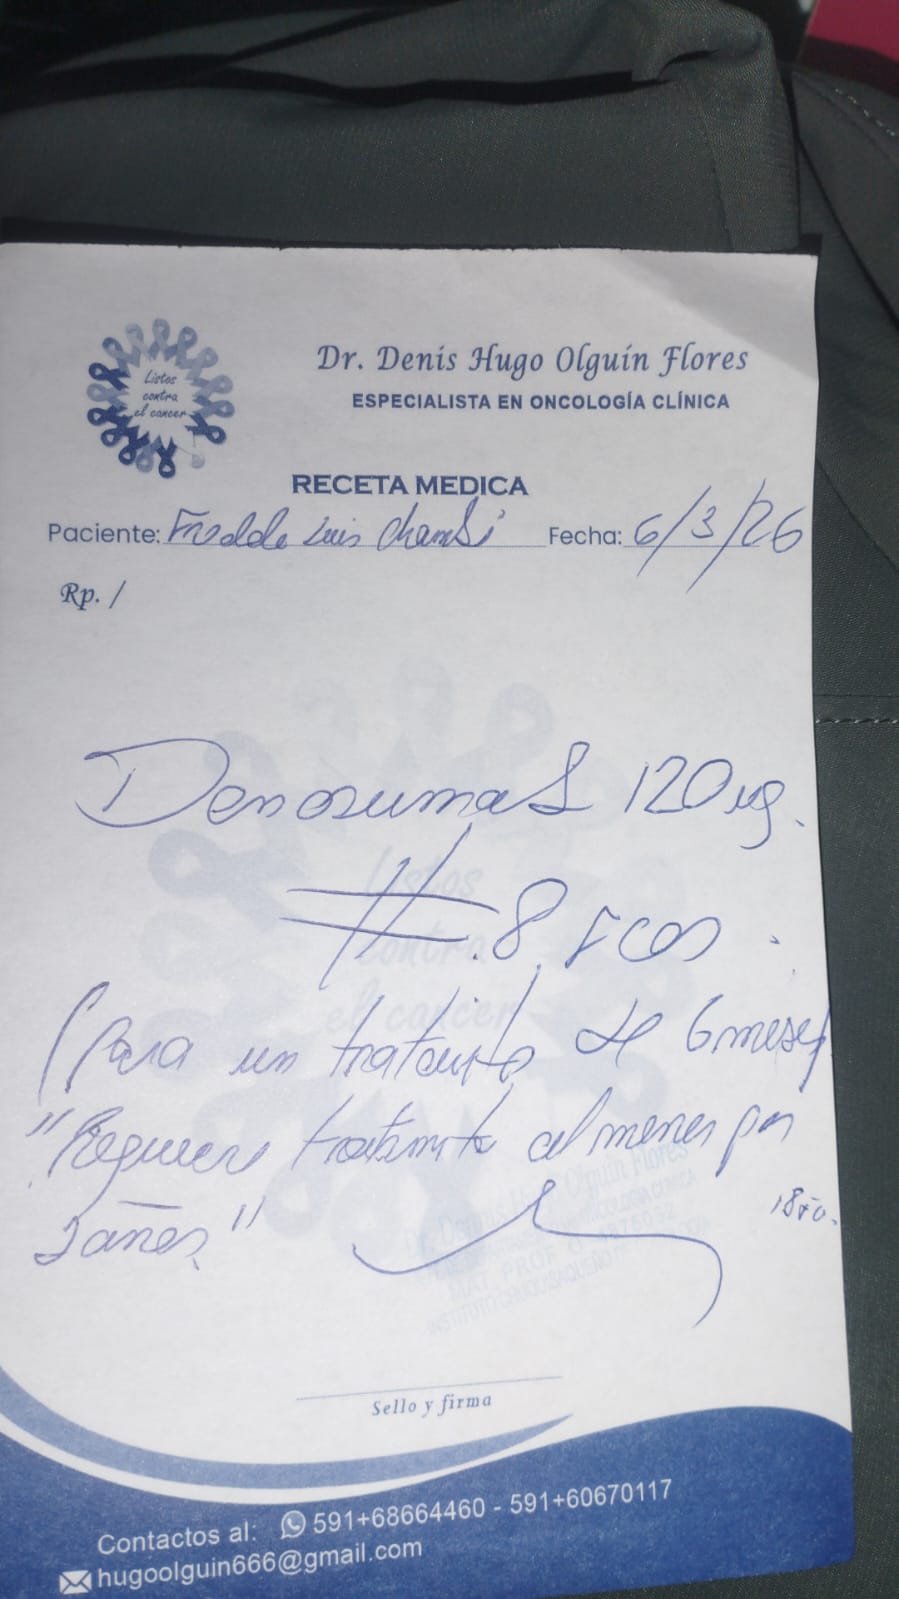 Listos
contra
el cancer
Dr. Denis Hugo Olguín Flores
ESPECIALISTA EN ONCOLOGÍA CLÍNICA
RECETA MEDICA
Paciente: Luis Fecha: 6/3/26
Rp. /
Denosumab 120 mg.
# 8 Fcos.
(Para un tratamiento de 6 meses)
"Requiere tratamiento al menos por
2 años"
Listos
contra
el cancer
Sello y firma
Contactos al: 591+68664460 - 591+60670117
hugoolguin666@gmail.com